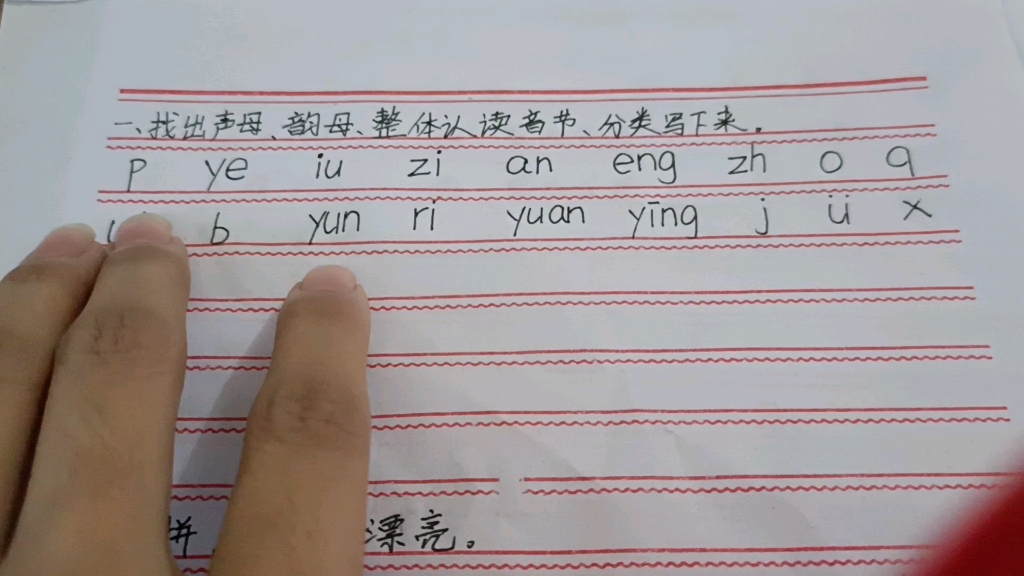 一、找出声母、韵母、整体认读音节、分类写下来。
p ye iu zi an eng zh o q
b yun ri yuan yīng j ü x
拼 漂亮。